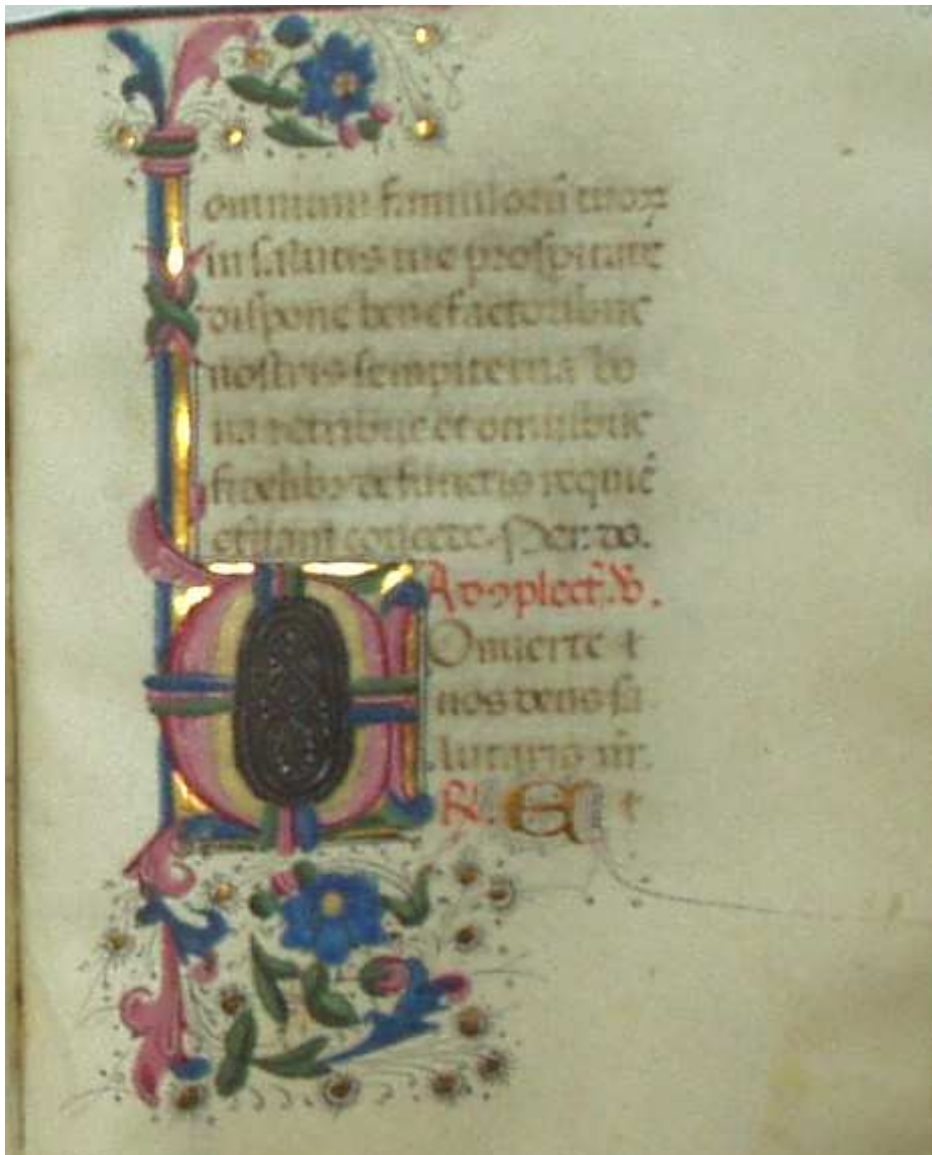 omnium famulorū tuoꝝ
in salutis tue prosperitate
dispone benefactoribus
nostris sempiterna bo
na retribue et omnibus
fidelibꝫ defunctis requiē
eternam concede. Per. do.
Ad ꝯplect. V.
Conuerte
nos deus sa
lutaris nr̄.
R. Et